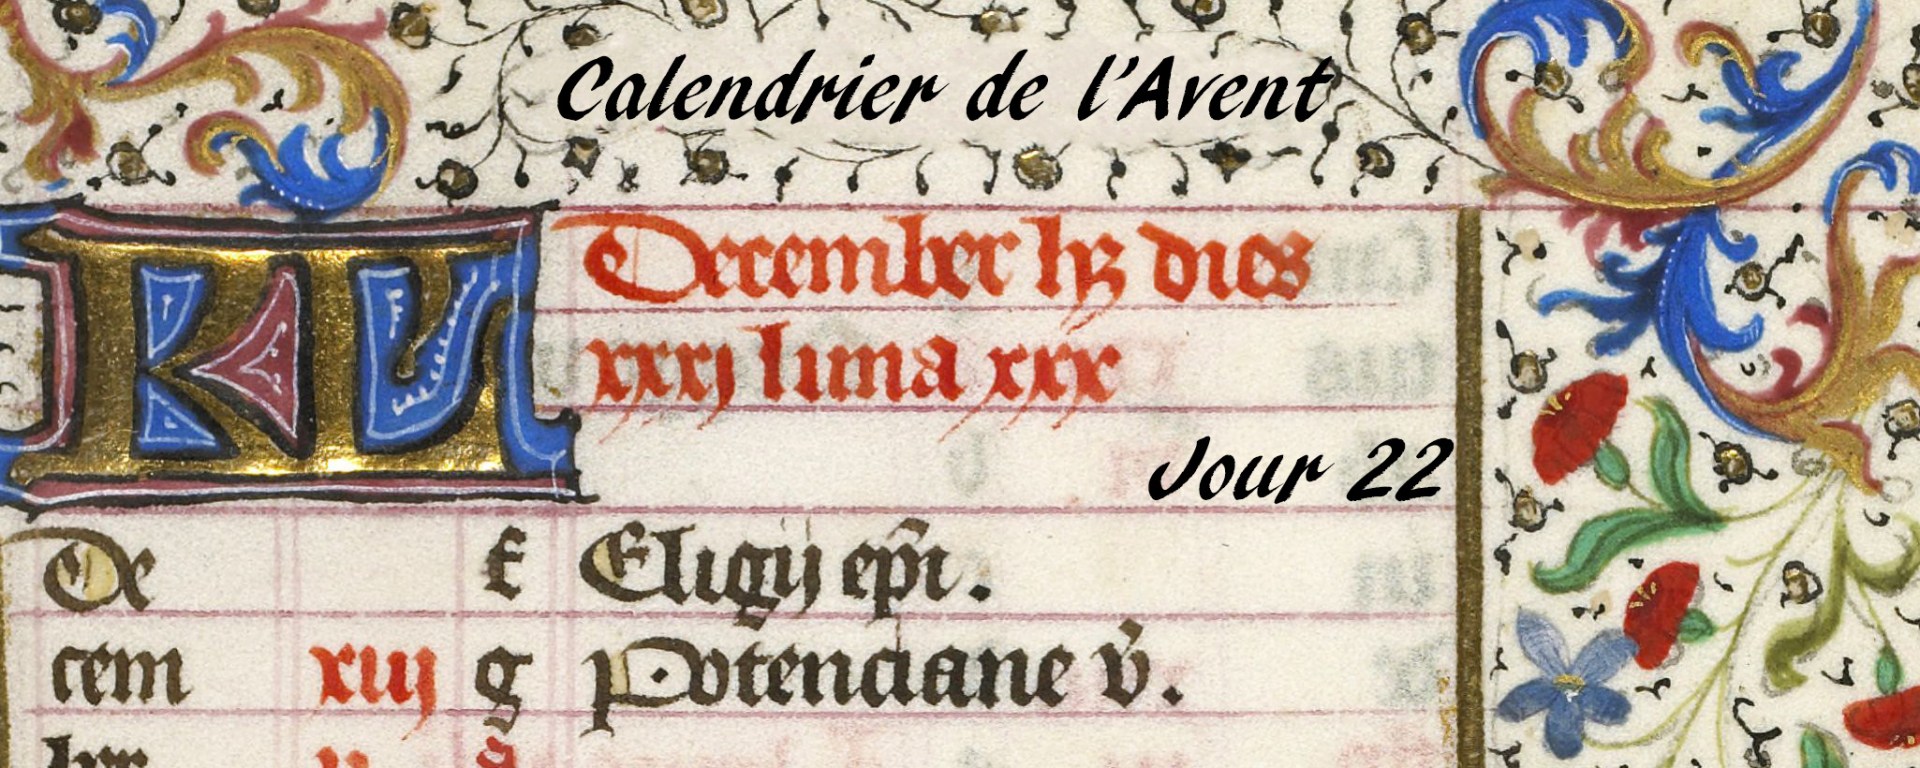 Calendrier de l'Avent
KL December hȝ dies
xxxj luna xxx
Jour 22
De f Eligij ep̄i.
cem xiij g Potenciane v̄.